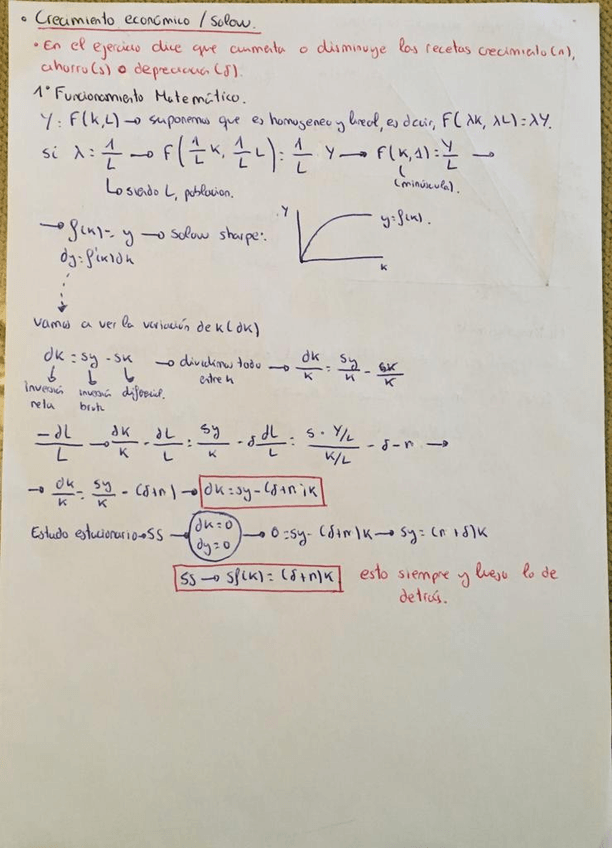 • Crecimiento económico / Solow.
• En el ejercicio dice que aumenta o disminuye las recetas crecimiento (n),
ahorro (s) o depreciación (δ).
1º Funcionamiento Matemático.
Y = F(K,L) → suponemos que es homogeneo y lineal, es decir, F(λK, λL) = λY.
si λ = 1/L → F(1/L K, 1/L L) = 1/L Y → F(K,1) = Y/L →
↳ siendo L, poblacion.
(minúscula).
→ f(k) = y → Solow sharpe:
Y
y = f(k).
K
dy = f'(k)dk
vamos a ver la variación de k (dk)
dk = sy - sk → dividimos todo entre k → dk/k = sy/k - sk/k
inversión neta
inversión bruta
-dL/L → dk/k - dL/L = sy/k - δ dL/L = s · Y/L / K/L - δ - n →
→ dk/k = sy/k - (δ+n) → dk = sy - (δ+n)k
Estado estacionario → SS → dk = 0 dy = 0 → 0 = sy - (δ+n)k → sy = (n+δ)k
SS → sf(k) = (δ+n)k
esto siempre y luego lo de
detrás.